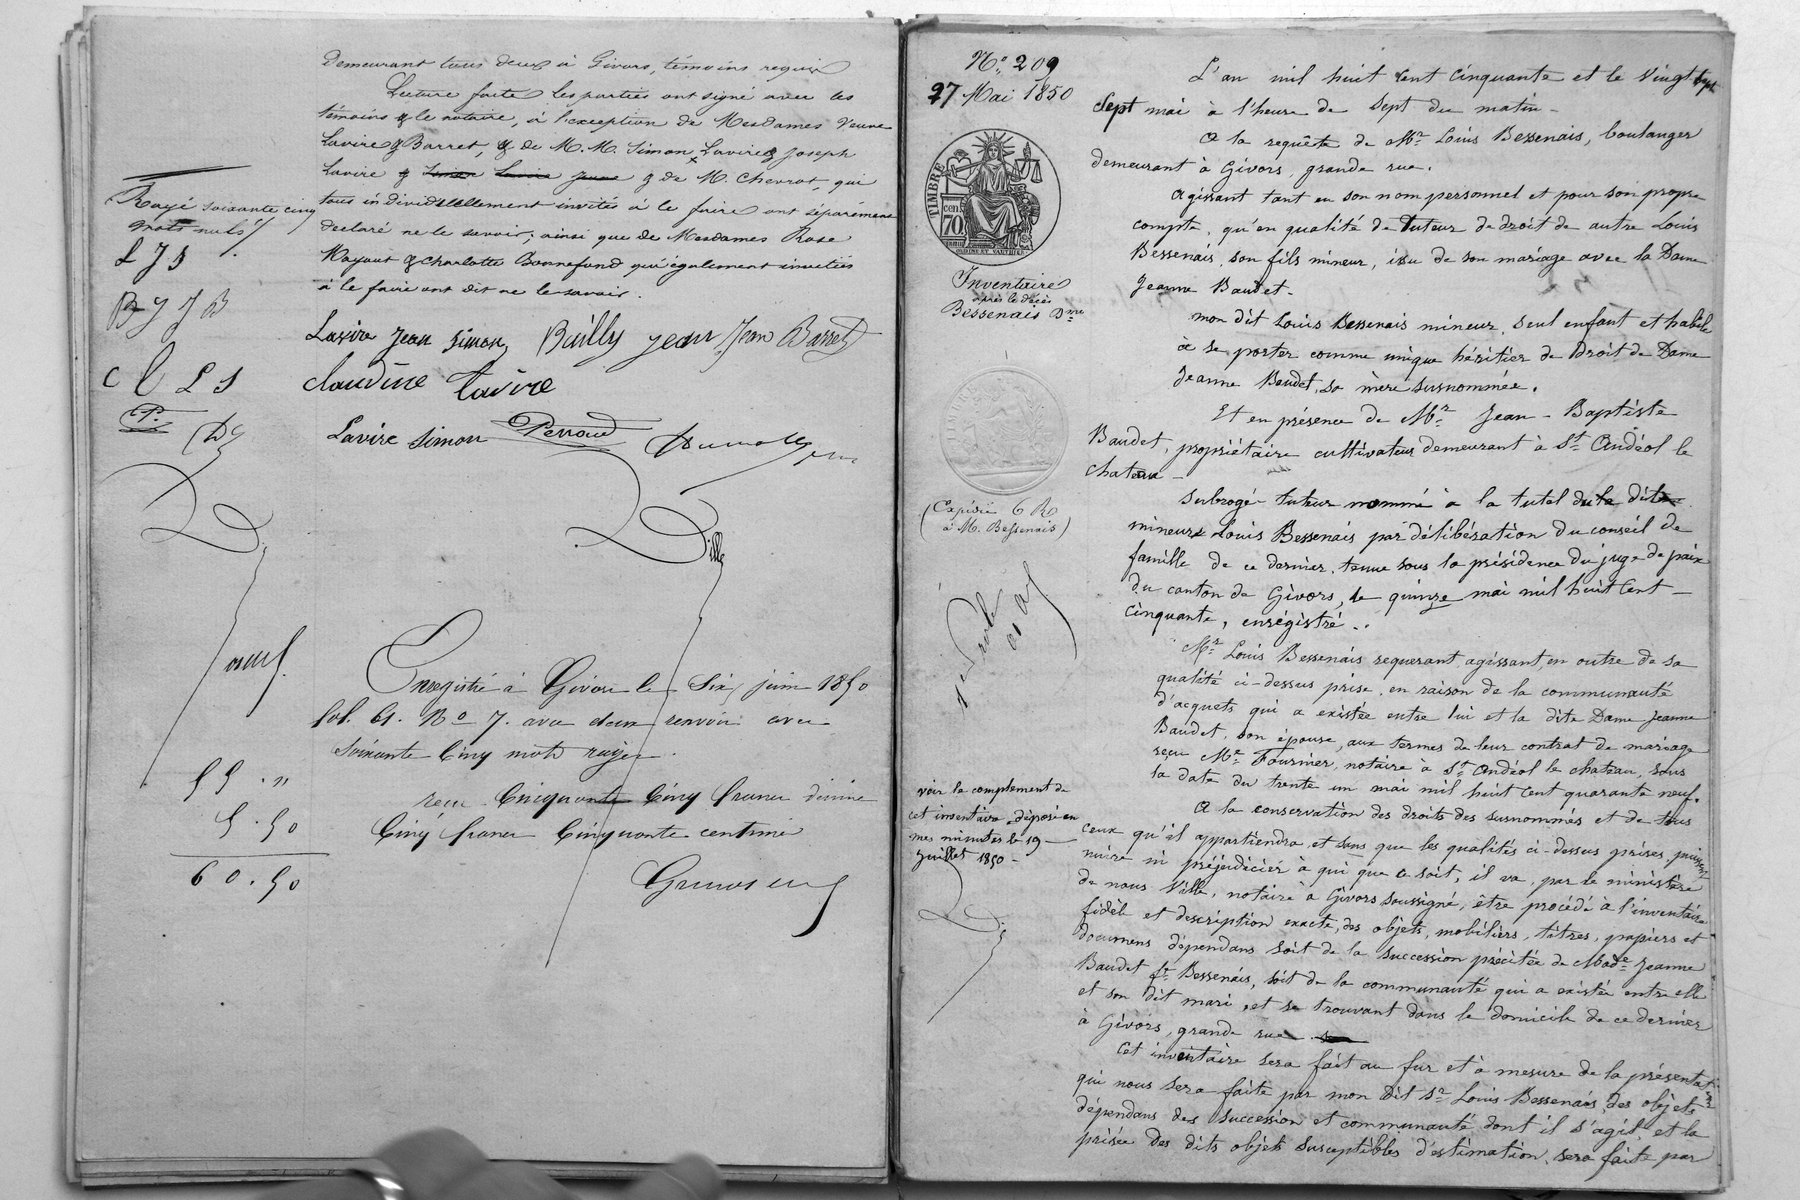 demeurant tous deux à Givors, témoins requis
Lecture faite les parties ont signé avec les
témoins & le notaire, à l'exception de Mesdames Veuve
Lavire & Barret, & de M. M. Simon Lavire & Joseph
Lavire & & de M. Chevrot, qui
tous individuellement invités à le faire ont séparément
déclaré ne le savoir; ainsi que de Mesdames Rose
Mayout & Charlotte Bonnefond qui également invitées
à le faire ont dit ne le savoir.
Rayé soixante cinq
mots nuls
L J S
B J J B
C L L S
P.
Lavire Jean Simon Bailly Jean Jean Barret
Claudine Lavire
Lavire Simon Perraud
Ville
Enregistré à Givors le Six juin 1850
fol. 61. No 7. avec deux renvois avec
Soixante Cinq mots rayés.
reçu Cinquante Cinq francs dixime
Cinq francs Cinquante centimes
55 . "
5 . 50
60 . 50
No. 209
27 Mai 1850
TIMBRE
70
Inventaire
après le décès
Bessenais Dme
(Expédié 6 R
à M. Bessenais)
voir le complement de
cet inventaire déposé en
mes minutes le 19
Juillet 1850 -
L'an mil huit cent cinquante et le Vingt sept
Sept mai à l'heure de Sept du matin -
A la requête de Mr. Louis Bessenais, boulanger
demeurant à Givors, grande rue.
Agissant tant en son nom personnel et pour son propre
compte, qu'en qualité de Tuteur de droit de autre Louis
Bessenais, son fils mineur, issu de son mariage avec la Dame
Jeanne Baudet -
mon dit Louis Bessenais mineur, seul enfant et habile
à se porter comme unique héritier de Droit de Dame
Jeanne Baudet, sa mère susnommée.
Et en présence de Mr. Jean - Baptiste
Baudet, propriétaire cultivateur demeurant à St. Andéol le
chateau -
subrogé tuteur nommé à la tutel du dit
mineur Louis Bessenais par délibération du conseil de
famille de ce dernier, tenue sous la présidence du juge de paix
du canton de Givors, le quinze mai mil huit cent -
cinquante, enrégistré ..
Mr. Louis Bessenais requerant, agissant, en outre de sa
qualité ci-dessus prise, en raison de la communauté
d'acquets qui a existée entre lui et la dite Dame Jeanne
Baudet, son épouse, aux termes de leur contrat de mariage
reçu Me. Fournier, notaire à St. Andéol le chateau, sous
la date du trente un mai mil huit cent quarante neuf.
A la conservation des droits des susnommés et de tous
ceux qu'il appartiendra, et sans que les qualités ci-dessus prises puissent
nuire ni préjudicier à qui que ce soit, il va, par le ministère
de nous Ville, notaire à Givors soussigné, être procédé à l'inventaire
fidèle et description exacte, des objets, mobiliers, titres, papiers et
documens dépendans soit de la succession précitée de Made. Jeanne
Baudet fe. Bessenais, soit de la communauté qui a existée entre elle
et son dit mari, et se trouvant dans le domicile de ce dernier
à Givors, grande rue
Cet inventaire sera fait au fur et à mesure de la présentation
qui nous sera faite par mon dit Sr. Louis Bessenais, des objets
dépendans des succession et communauté dont il s'agit, et la
prisée des dits objets susceptibles d'estimation, sera faite par